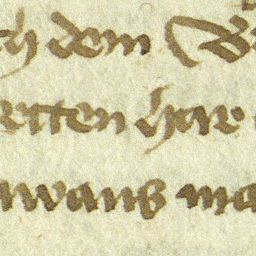 ch dem
etten har
wans ma